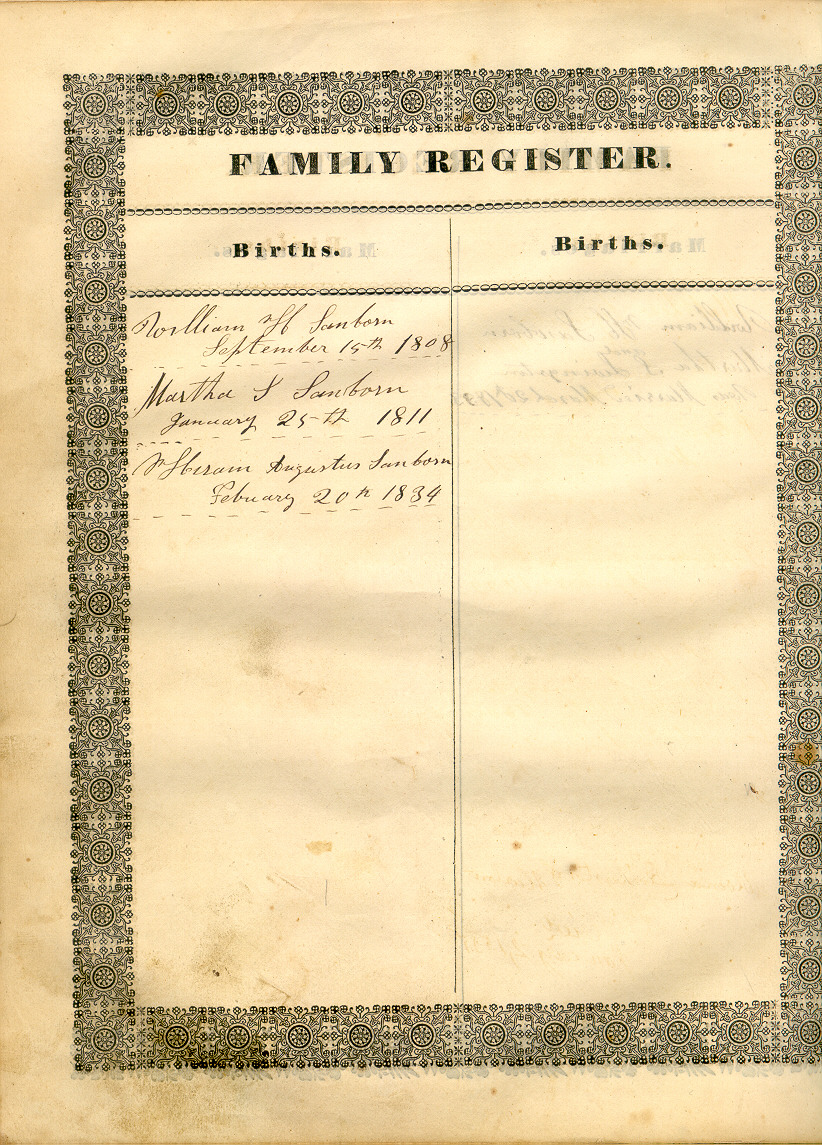 FAMILY REGISTER.
Births.
Births.
William H Sanborn
September 15th 1808
Martha S Sanborn
January 25th 1811
Hiram Augustus Sanborn
Febuary 20th 1834